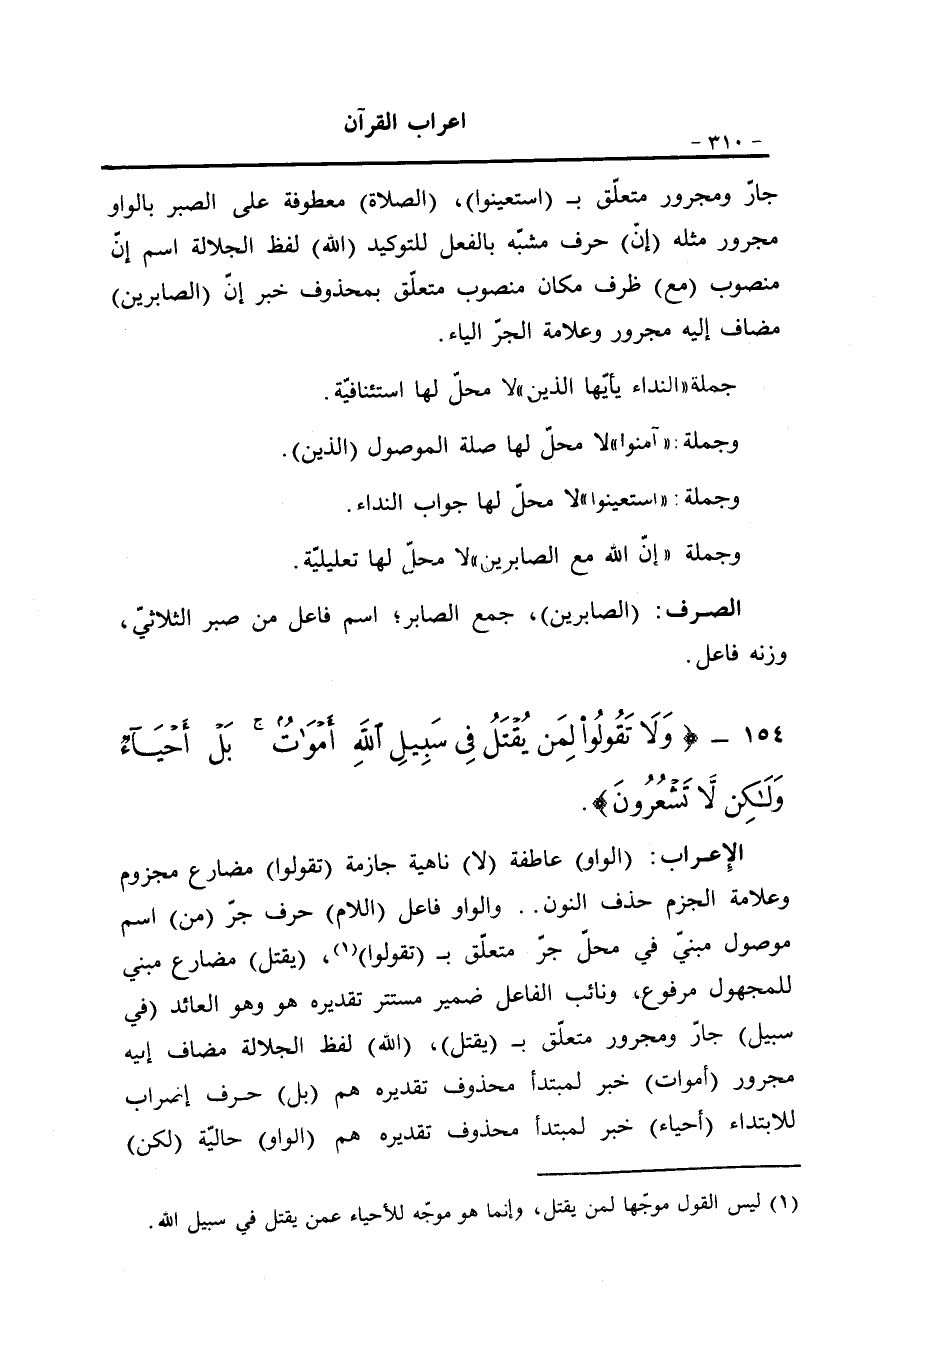 اعراب القرآن
- ٣١٠ -
جارّ ومجرور متعلّق بـ (استعينوا)، (الصلاة) معطوفة على الصبر بالواو
مجرور مثله (إنّ) حرف مشبّه بالفعل للتوكيد (الله) لفظ الجلالة اسم إنّ
منصوب (مع) ظرف مكان منصوب متعلّق بمحذوف خبر إنّ (الصابرين)
مضاف إليه مجرور وعلامة الجرّ الياء.
جملة«النداء يأيّها الذين»لا محلّ لها استئنافيّة.
وجملة:«آمنوا»لا محلّ لها صلة الموصول (الذين).
وجملة: «استعينوا»لا محلّ لها جواب النداء.
وجملة «إنّ الله مع الصابرين»لا محلّ لها تعليليّة.
الصرف: (الصابرين)، جمع الصابر؛ اسم فاعل من صبر الثلاثيّ،
وزنه فاعل.
١٥٤ - ﴿ وَلَا تَقُولُواْ لِمَن يُقْتَلُ فِى سَبِيلِ ٱللَّهِ أَمْوَٰتٌۢ ۚ بَلْ أَحْيَآءٌ
وَلَٰكِن لَّا تَشْعُرُونَ﴾.
الإعراب: (الواو) عاطفة (لا) ناهية جازمة (تقولوا) مضارع مجزوم
وعلامة الجزم حذف النون.. والواو فاعل (اللام) حرف جرّ (من) اسم
موصول مبنيّ في محلّ جرّ متعلّق بـ (تقولوا)(١)، (يقتل) مضارع مبني
للمجهول مرفوع، ونائب الفاعل ضمير مستتر تقديره هو وهو العائد (في
سبيل) جارّ ومجرور متعلّق بـ (يقتل)، (الله) لفظ الجلالة مضاف إليه
مجرور (أموات) خبر لمبتدأ محذوف تقديره هم (بل) حرف إضراب
للابتداء (أحياء) خبر لمبتدأ محذوف تقديره هم (الواو) حاليّة (لكن)
(١) ليس القول موجّها لمن يقتل، وإنما هو موجّه للأحياء عمن يقتل في سبيل الله.